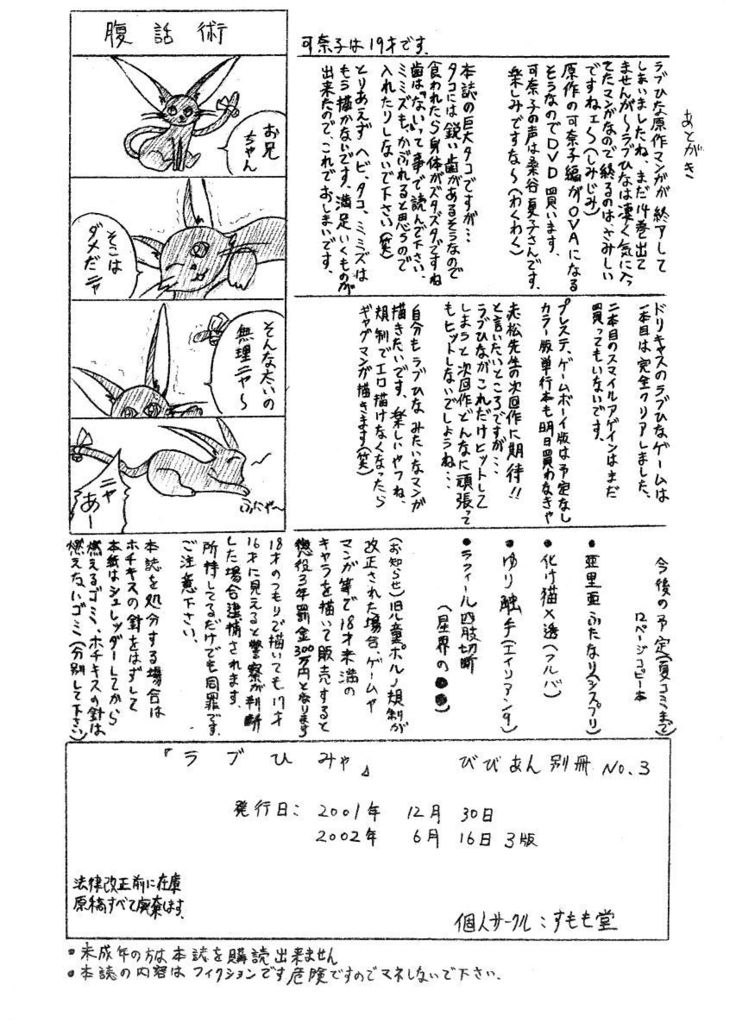 あとがき
ラブひな原作マンガが終了して
しまいましたね、まだ14巻出て
ませんが〜ラブひなは凄く気に入っ
てたマンガなので終るのはさみしい
ですねェ〜(しみじみ)
原作の可奈子編がOVAになる
そうなのでDVD買います。
可奈子の声は桑谷夏子さんです、
楽しみですな〜(わくわく)
可奈子は19才です。
本誌の巨大タコですが…
タコには鋭い歯があるそうなので
食われたら身体がズタズタですね
歯は"ない"って事で読んで下さい、
ミミズも、かぶれると思うので
入れたりしないで下さい(笑)
とりあえず ヘビ、タコ、ミミズは
もう描かないです、満足いくものが
出来たので、これでおしまいです、
腹話術
お兄
ちゃん
そこは
ダメだニャ
そんな太いの
無理ニャ〜
ニャ
あー
ふにゃ〜
ドリキャスのラブひなゲームは
一本目は完全クリアしました、
二本目のスマイルアゲインはまだ
買ってもいないです。
プレステ、ゲームボーイ版は予定なし
カラー版単行本も明日買わなきゃ
赤松先生の次回作に期待!!
と言いたいところですが…
ラブひながこれだけヒットして
しまうと次回作どんなに頑張って
もヒットしないでしょうね…
自分もラブひなみたいなマンガ
描きたいです、楽しいやつね、
規制でエロ描けなくなったら
ギャグマンガ描きます(笑)
今後の予定(夏コミまで)
12ページコピー本
●亜里亜ふたなり(シスプリ)
●化け猫×透(フルバ)
●ゆり触手(エイリアン9)
●ラフィール四肢切断
(星界の●●)
(お知らせ)旧児童ポルノ規制が
改正された場合、ゲームや
マンガ等で18才未満の
キャラを描いて販売すると
懲役3年罰金300万円となります
18才のつもりで描いても17才
16才に見えると警察が判断
した場合逮捕されます、
所持してるだけでも同罪です、
ご注意下さい、
本誌を処分する場合は
ホチキスの針をはずして
本紙はシュレッダーしてから
燃えるゴミ、ホチキスの針は
燃えないゴミ(分別して下さい)
『ラブひみゃ』 びびあん別冊 No.3
発行日: 2001年 12月 30日
2002年 6月 16日 3版
法律改正前に在庫
原稿すべて廃棄します、
個人サークル:すもも堂
●未成年の方は本誌を購読出来ません
●本誌の内容はフィクションです危険ですのでマネしないで下さい、